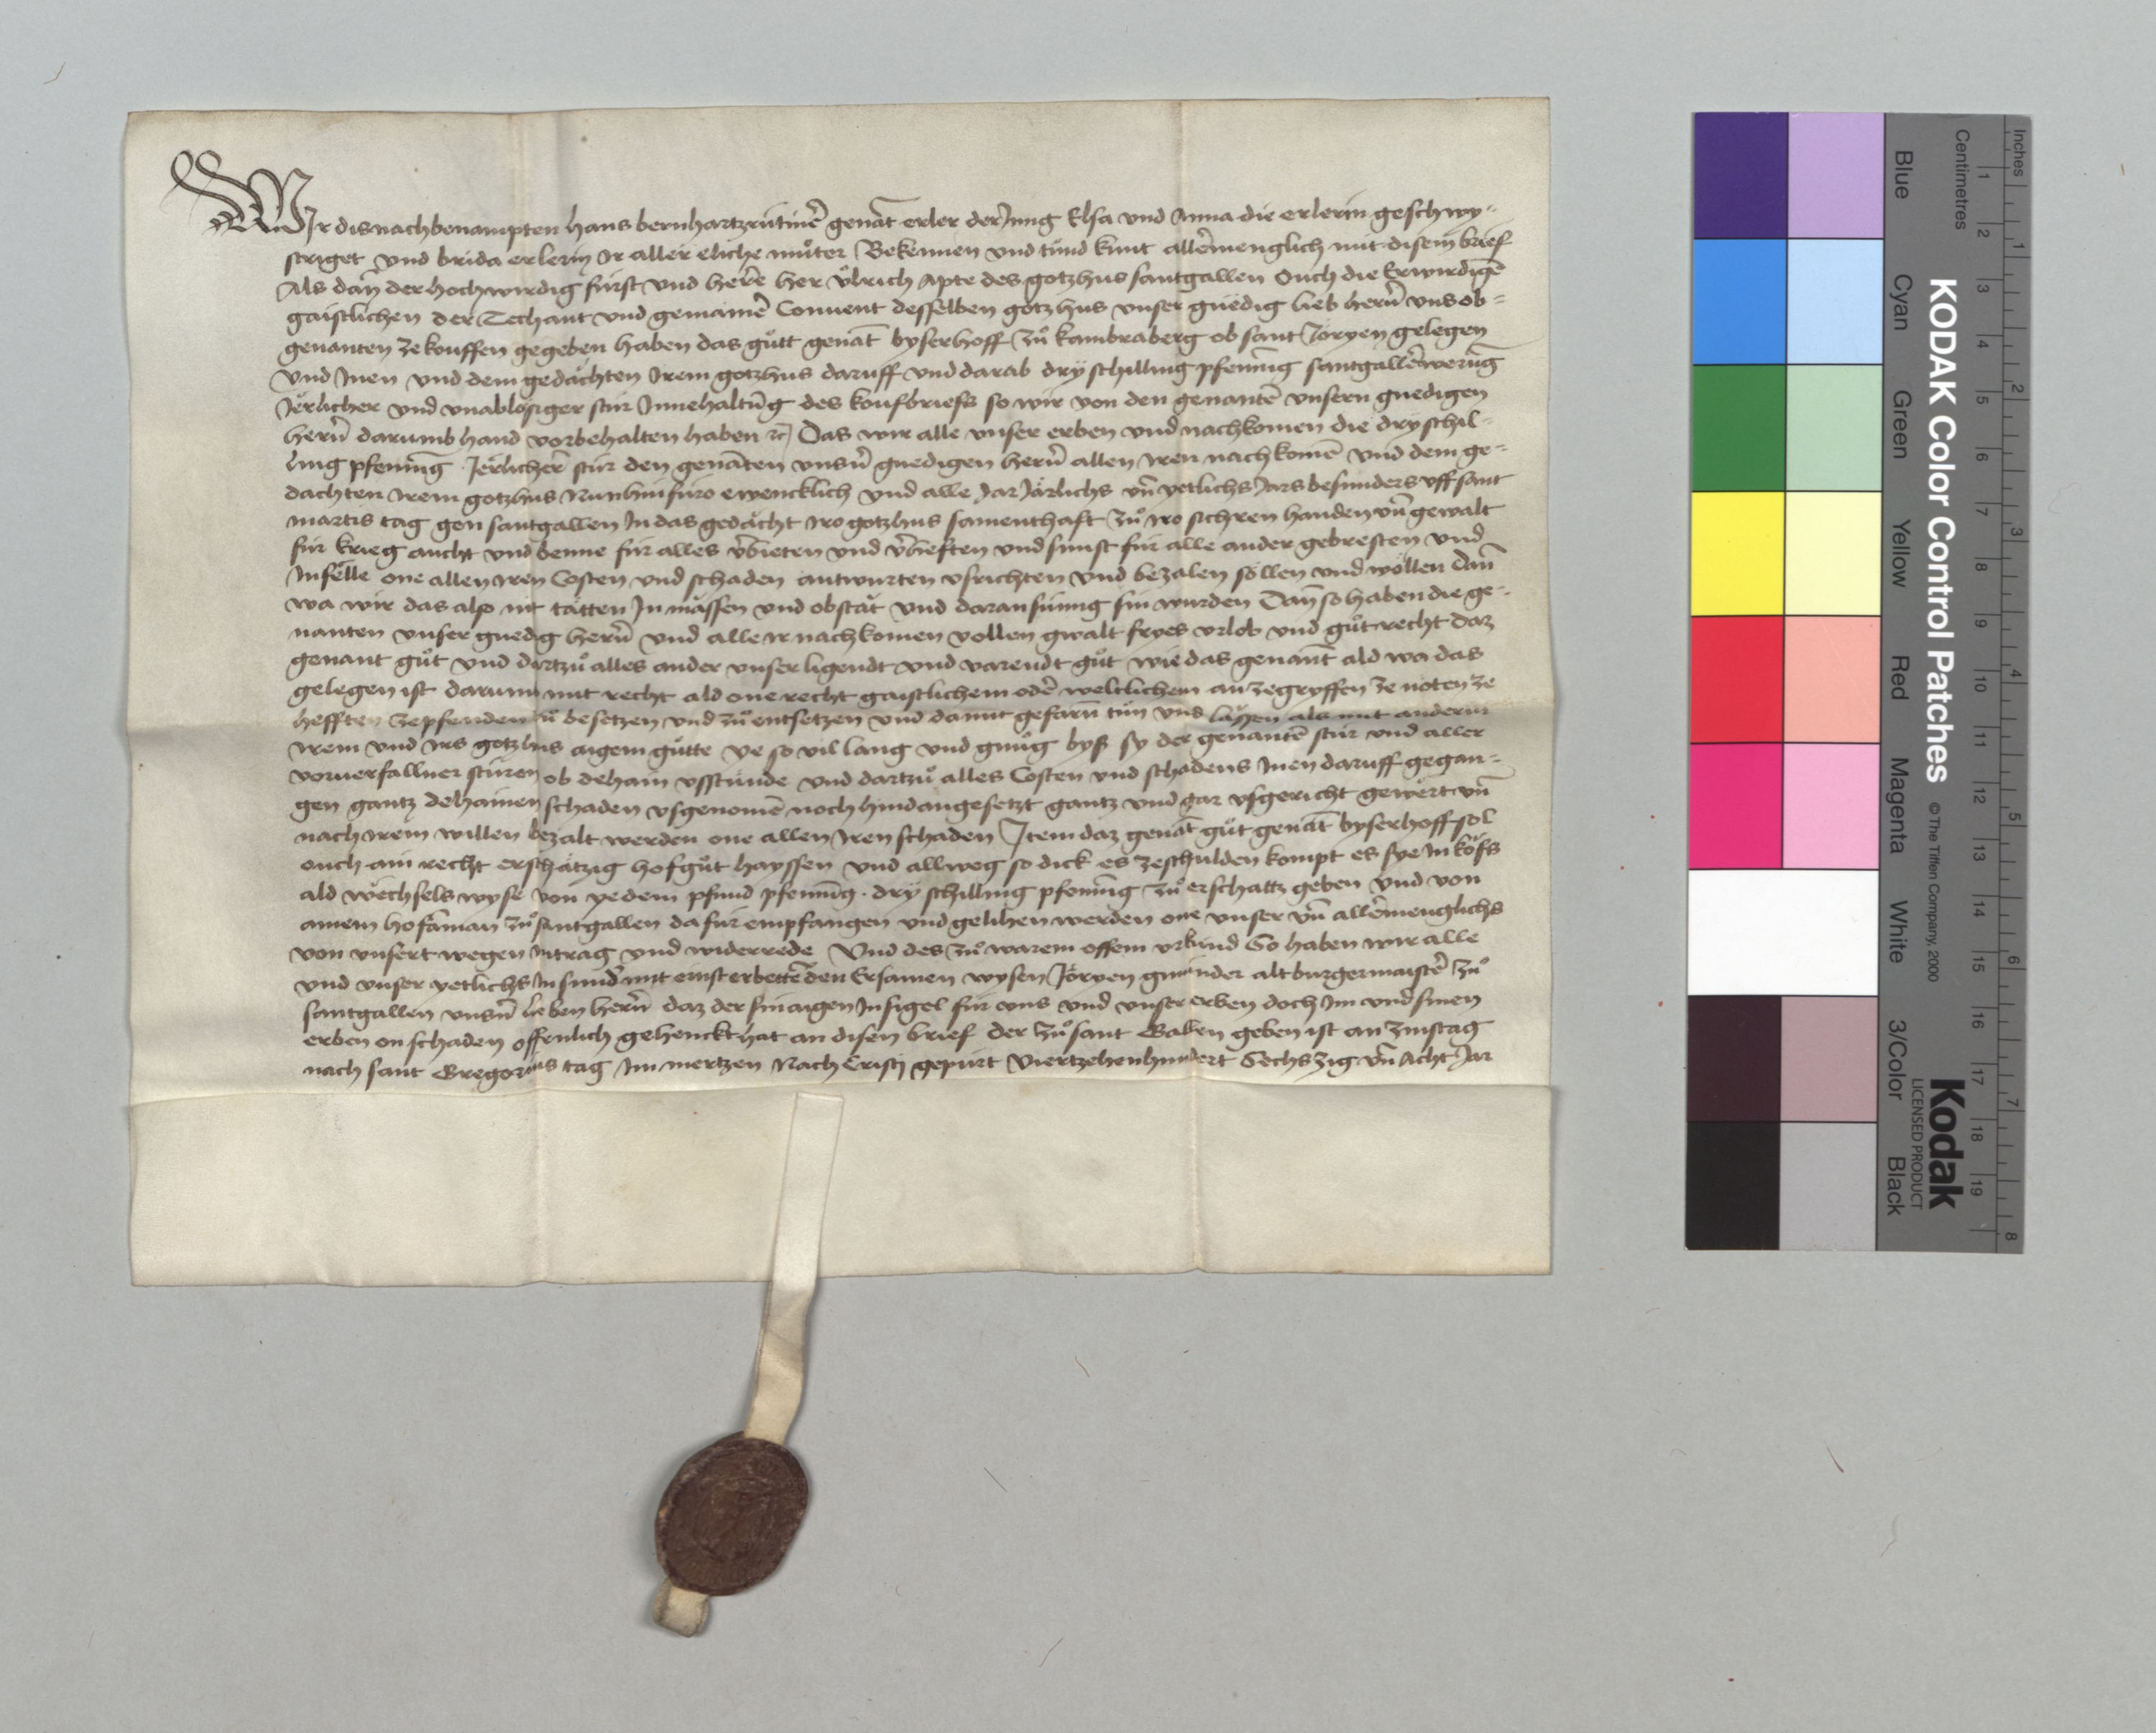 WIr dis nachbenampten hans bernhartzrütinē genāt erler der Jung Elsa und Anna die erlerin geschwy-
strigct und brida erlerin Ir aller eliche můter Bekennen und tůnd kunt allēmenglich mit disem brief
Als dañ der hochwirdig fürst und herre her Ůlrich Apte des gotzhus santgallen Ouch die Erwirdigē
gaistlichen der Techant und gemainē Conuent desselben gotzhus unser gnedig lieb herñ uns ob-
genanten ze kouffen gegeben haben das gůtt genāt byserhoff zů kambraberg ob sant Jöryen gelegen
Und Inen und dem gedächten Irem gotzhus daruff und darab dry schilling pfenning santgallēwerūg
Jerlicher und unablösiger stür Innehaltūg des koufbriefs so wir von den genantē unsern gnedigen
herñ darumb hand vorbehalten haben ꝛc Das wir alle unser erben und nachkomen die dry schil-
ling pfenning Jerlicher stür den genāten unsñ gnedigen herñ allen Iren nachkomē und dem ge-
dachten Irem gotzhus Nunhinfüro ewencklich und alle Jar Järlichs uñ yetlichs Jars besunders uff sant
martis tag gen santgallen In das gedächt Iro gotzhus samenthaft zů Iro sichren handen uñ gewalt
für krieg aucht und benne für alles v̄bieten und v̄hefften und sunst für alle ander gebresten und
Infelle one allen Iren Costen und schaden antwurten usrichten und bezalen söllen und wöllen dañ
wa wir das also nit tätten In mässen und obstät und daran sümig sin wurden Dañ so haben die ge-
nanten unser gnedig herñ und alle Ir nachkomen vollen gwalt fryes urlob und gůt recht daz
genant gůt und dartzů alles ander unser ligendt und varendt gůt wie das genant ald wa das
gelegen ist darumb mit recht ald one recht gaistlichem odē weltlichem an zegryffen ze nöten ze
hefften ze pfenden zů besetzen und zů entsetzen und damit gefarñ tůn und lassen als mit anderm
Irem und Irs gotzhus aigem gůtte ye so vil lang und gnůg byß sy der genantē stür und aller
vorverfallner stüren ob dehain usstünde und dartzů alles Costen und schadens Inen daruff gegan-
gen gantz dehainen schaden usgenomē noch hindangesetzt gantz und gar usgericht gewert uñ
nach Irem willen bezalt werden one allen Iren schaden Item daz genāt gůt genāt byserhoff sol
ouch ain recht erschätzig hofgůt hayssen und allweg so dick es ze schulden kompt es sye In köfs
ald wechsels wyse von yedem pfund pfenning dry schilling pfenning zů erschatz geben und von
ainem hofaman zů santgallen dafür empfangen und gelihen werden one unser uñ allēmenglichs
von unsert wegen Intrag und widerrede Und des zů warem offem urkund So haben wir alle
und unser yetlichs In sundē mit ernst erbettē den Ersamen wysen Jöryen gmünder alt burgermaistē zů
santgallen unsñ lieben herñ daz der sin aigen Insigel für uns und unser erben doch Im und sinen
erben on schaden offenlich gehenckt hat an disen brief der zů sant Gallen geben ist an zinstag
nach sant Gregorius tag Im mertzen Nach Cristi gepürt Viertzehenhundert Sechszig uñ Acht Jar
Inches
Centimetres
KODAK Color Control Patches
© The Tiffen Company, 2000
Kodak
LICENSED PRODUCT
Blue Cyan Green Yellow Red Magenta White 3/Color Black
1 2 3 4 5 6 7 8 9 10 11 12 13 14 15 16 17 18 19
1 2 3 4 5 6 7 8